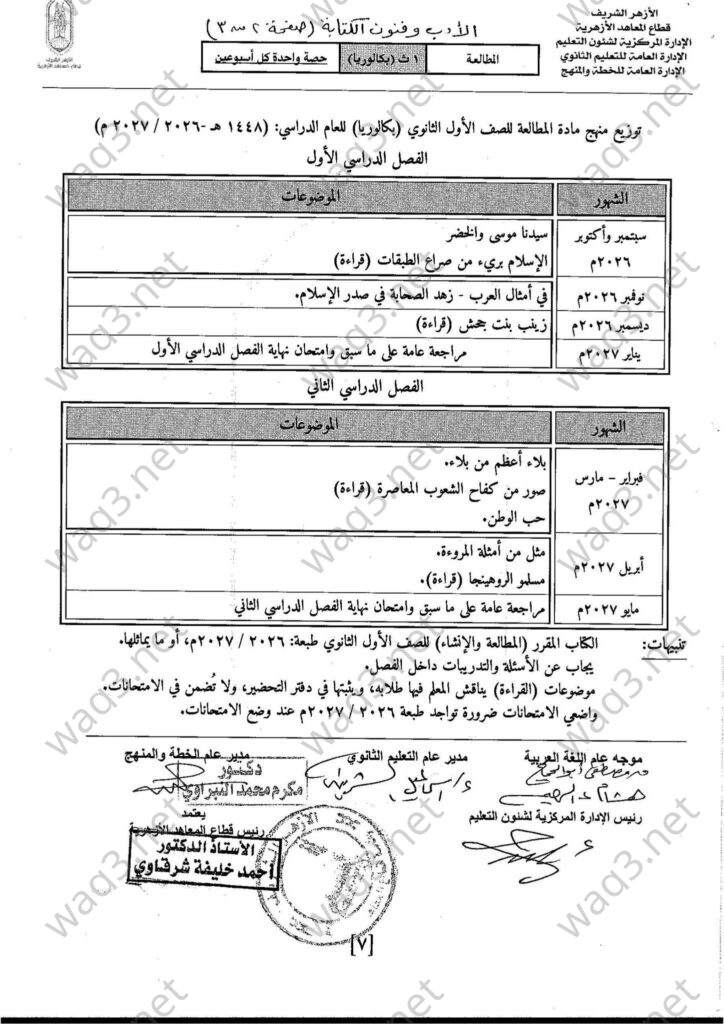 الأزهر الشريف
قطاع المعاهد الأزهرية
الإدارة المركزية لشئون التعليم
الإدارة العامة للتعليم الثانوي
الإدارة العامة للخطة والمنهج
الأزهر الشريف
قطاع المعاهد الأزهرية
الأدب وفنون الكتابة (صفحة ٢ من ٣)
المطالعة
١ ث (بكالوريا)
حصة واحدة كل أسبوعين
توزيع منهج مادة المطالعة للصف الأول الثانوي (بكالوريا) للعام الدراسي: (١٤٤٨ هـ -٢٠٢٦ / ٢٠٢٧ م)
الفصل الدراسي الأول
الشهور
الموضوعات
سبتمبر وأكتوبر
٢٠٢٦م
سيدنا موسى والخضر
الإسلام بريء من صراع الطبقات (قراءة)
نوفمبر ٢٠٢٦م
في أمثال العرب - زهد الصحابة في صدر الإسلام.
ديسمبر ٢٠٢٦م
زينب بنت جحش (قراءة)
يناير ٢٠٢٧م
مراجعة عامة على ما سبق وامتحان نهاية الفصل الدراسي الأول
الفصل الدراسي الثاني
الشهور
الموضوعات
فبراير - مارس
٢٠٢٧م
بلاء أعظم من بلاء.
صور من كفاح الشعوب المعاصرة (قراءة)
حب الوطن.
أبريل ٢٠٢٧م
مثل من أمثلة المروءة.
مسلمو الروهينجا (قراءة).
مايو ٢٠٢٧م
مراجعة عامة على ما سبق وامتحان نهاية الفصل الدراسي الثاني
تنبيهات: الكتاب المقرر (المطالعة والإنشاء) للصف الأول الثانوي طبعة: ٢٠٢٦ / ٢٠٢٧م، أو ما يماثلها.
يجاب عن الأسئلة والتدريبات داخل الفصل.
موضوعات (القراءة) يناقش المعلم فيها طلابه، ويثبتها في دفتر التحضير، ولا تُضمن في الامتحانات.
واضعي الامتحانات ضرورة تواجد طبعة ٢٠٢٦ / ٢٠٢٧م عند وضع الامتحانات.
موجه عام اللغة العربية
مدير عام التعليم الثانوي
مدير عام الخطة والمنهج
دكتور
مكرم محمد النبراوي
رئيس الإدارة المركزية لشئون التعليم
يعتمد
رئيس قطاع المعاهد الأزهرية
الأستاذ الدكتور
أحمد خليفة شرقاوي
[٧]
waq3.net